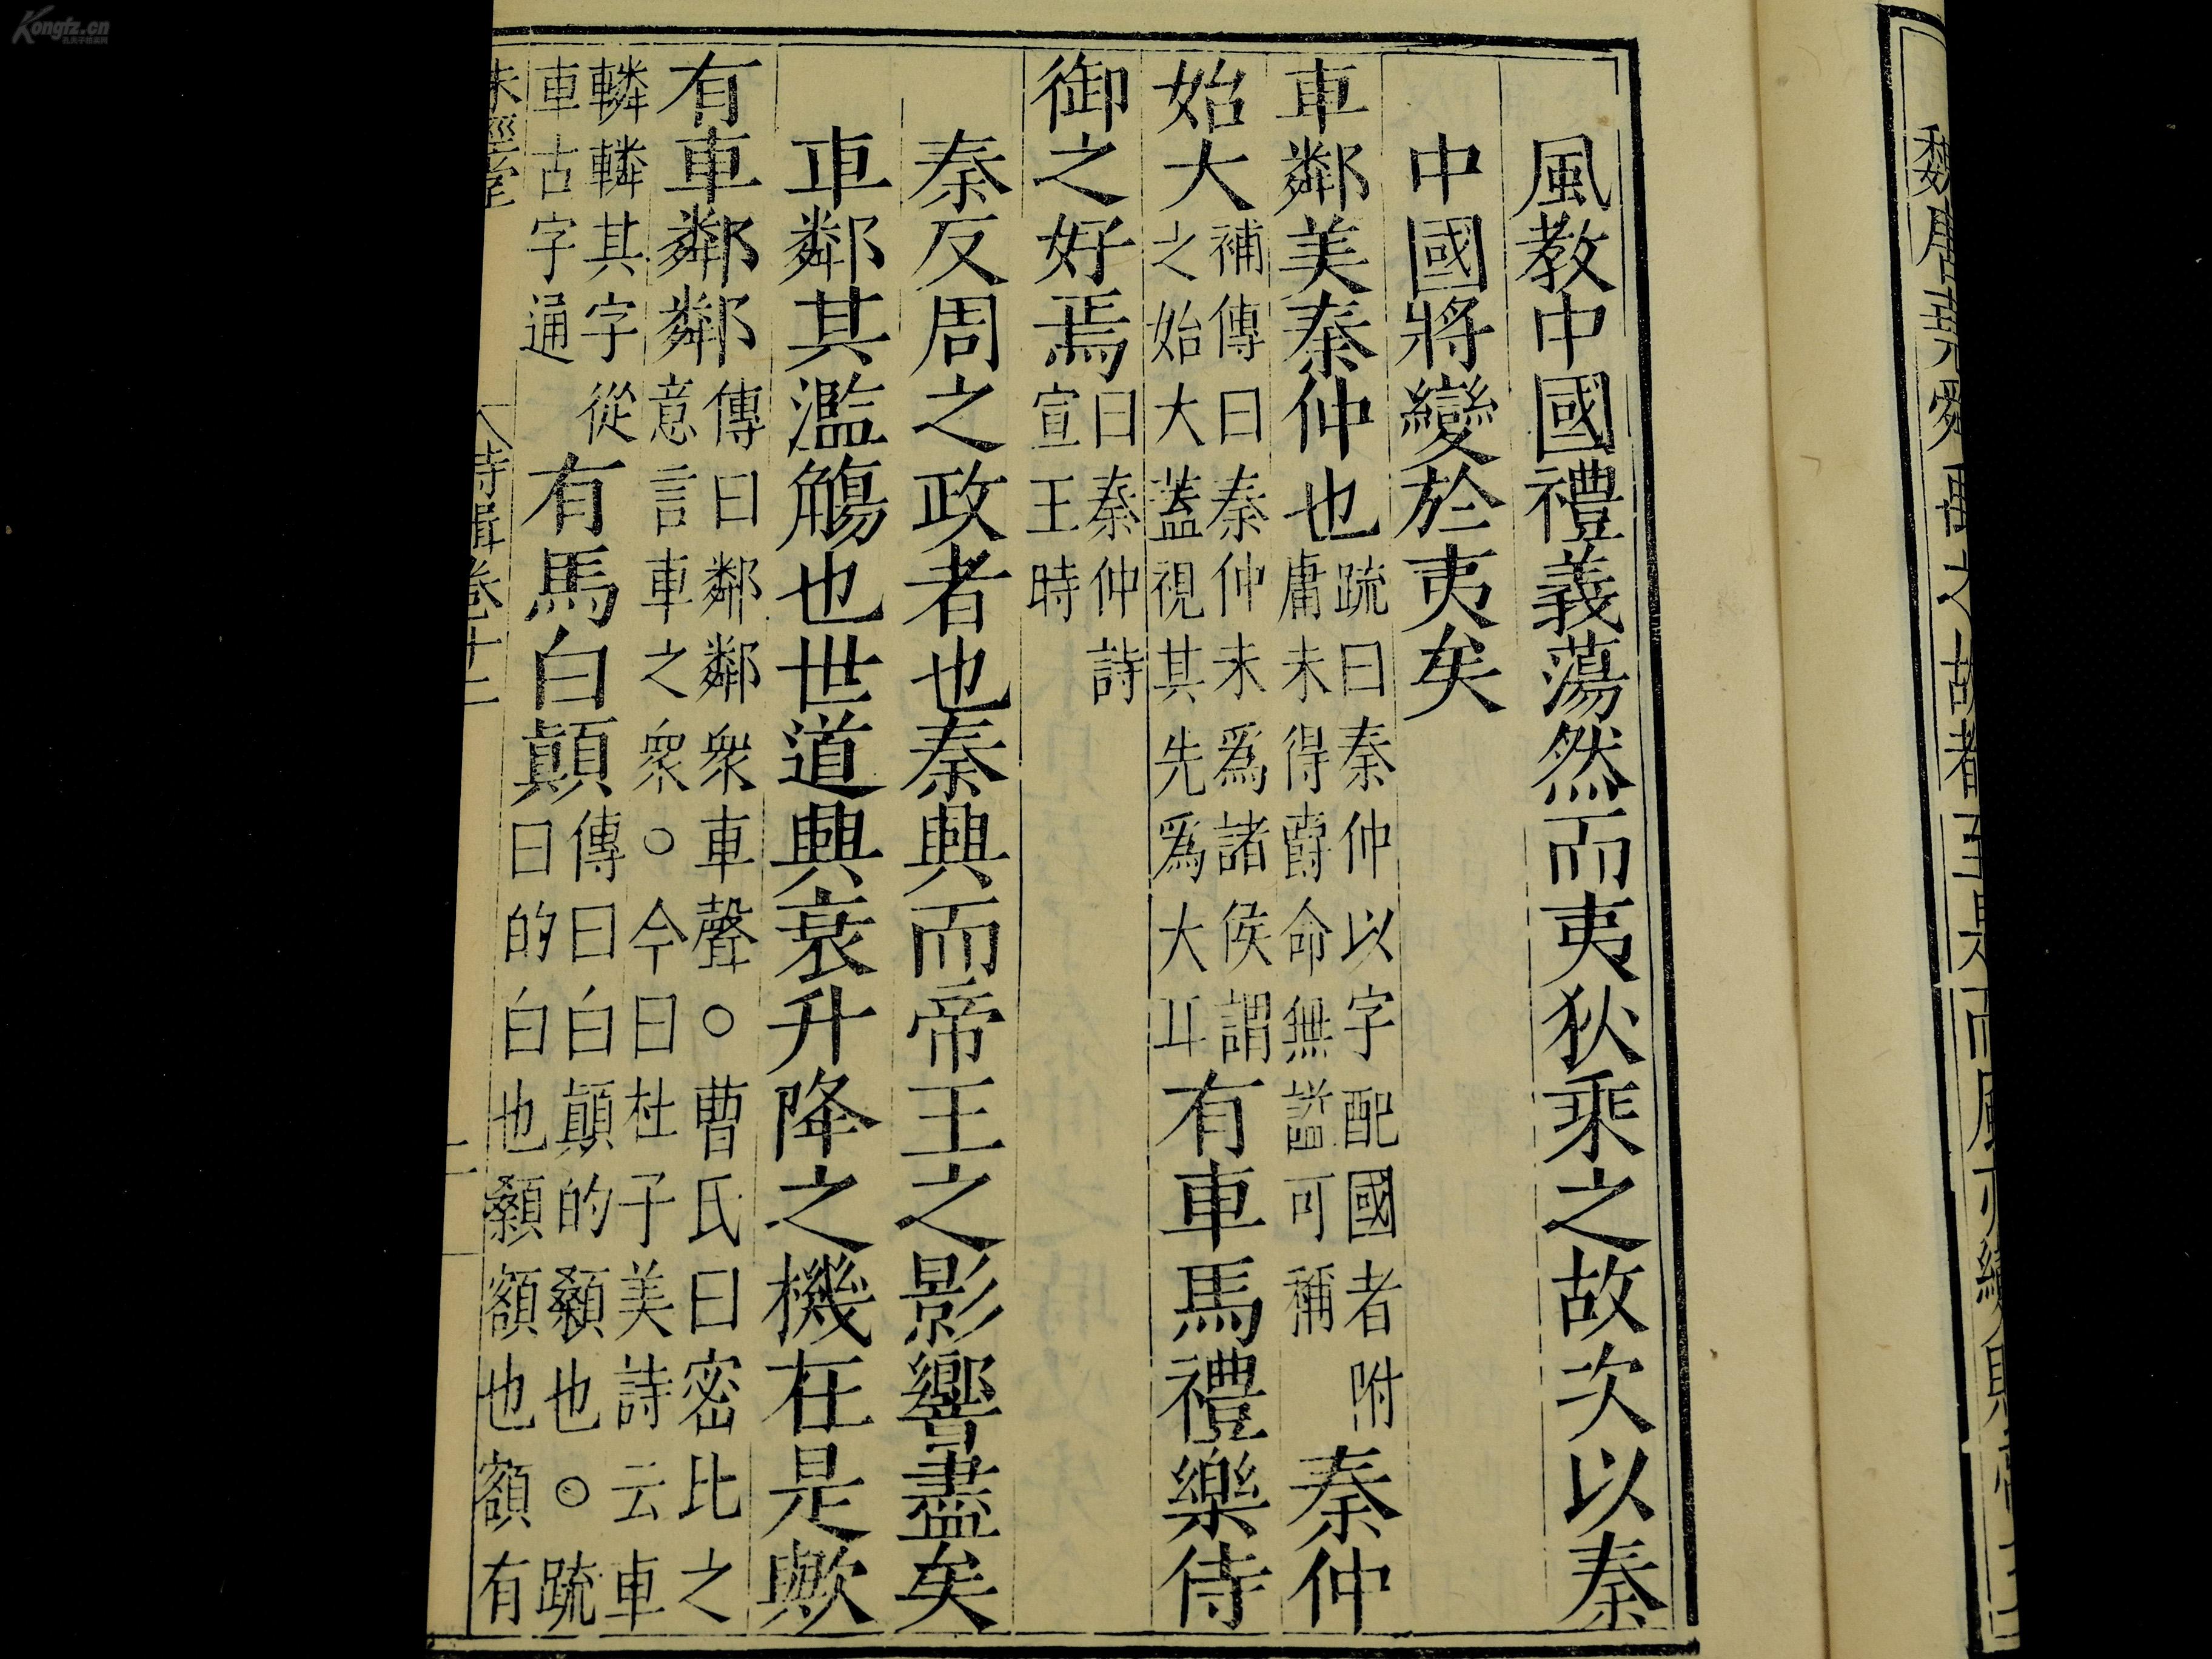 風教中國禮義蕩然而夷狄乘之故次以秦
中國將變於夷矣
車鄰美秦仲也疏曰秦仲以字配國者附庸未得爵命無謚可稱秦仲
始大補傳曰秦仲未爲諸侯謂之始大蓋視其先爲大耳有車馬禮樂侍
御之好焉曰秦仲詩宣王時
秦反周之政者也秦興而帝王之影響盡矣
車鄰其濫觴也世道興衰升降之機在是歟
有車鄰鄰傳曰鄰鄰衆車聲○曹氏曰密比之意言車之衆○今曰杜子美詩云車
轔轔其字從車古字通有馬白顛傳曰白顛的顙也○疏曰的白也顙額也額有
詩緝卷十二
二
Kongfz.cn